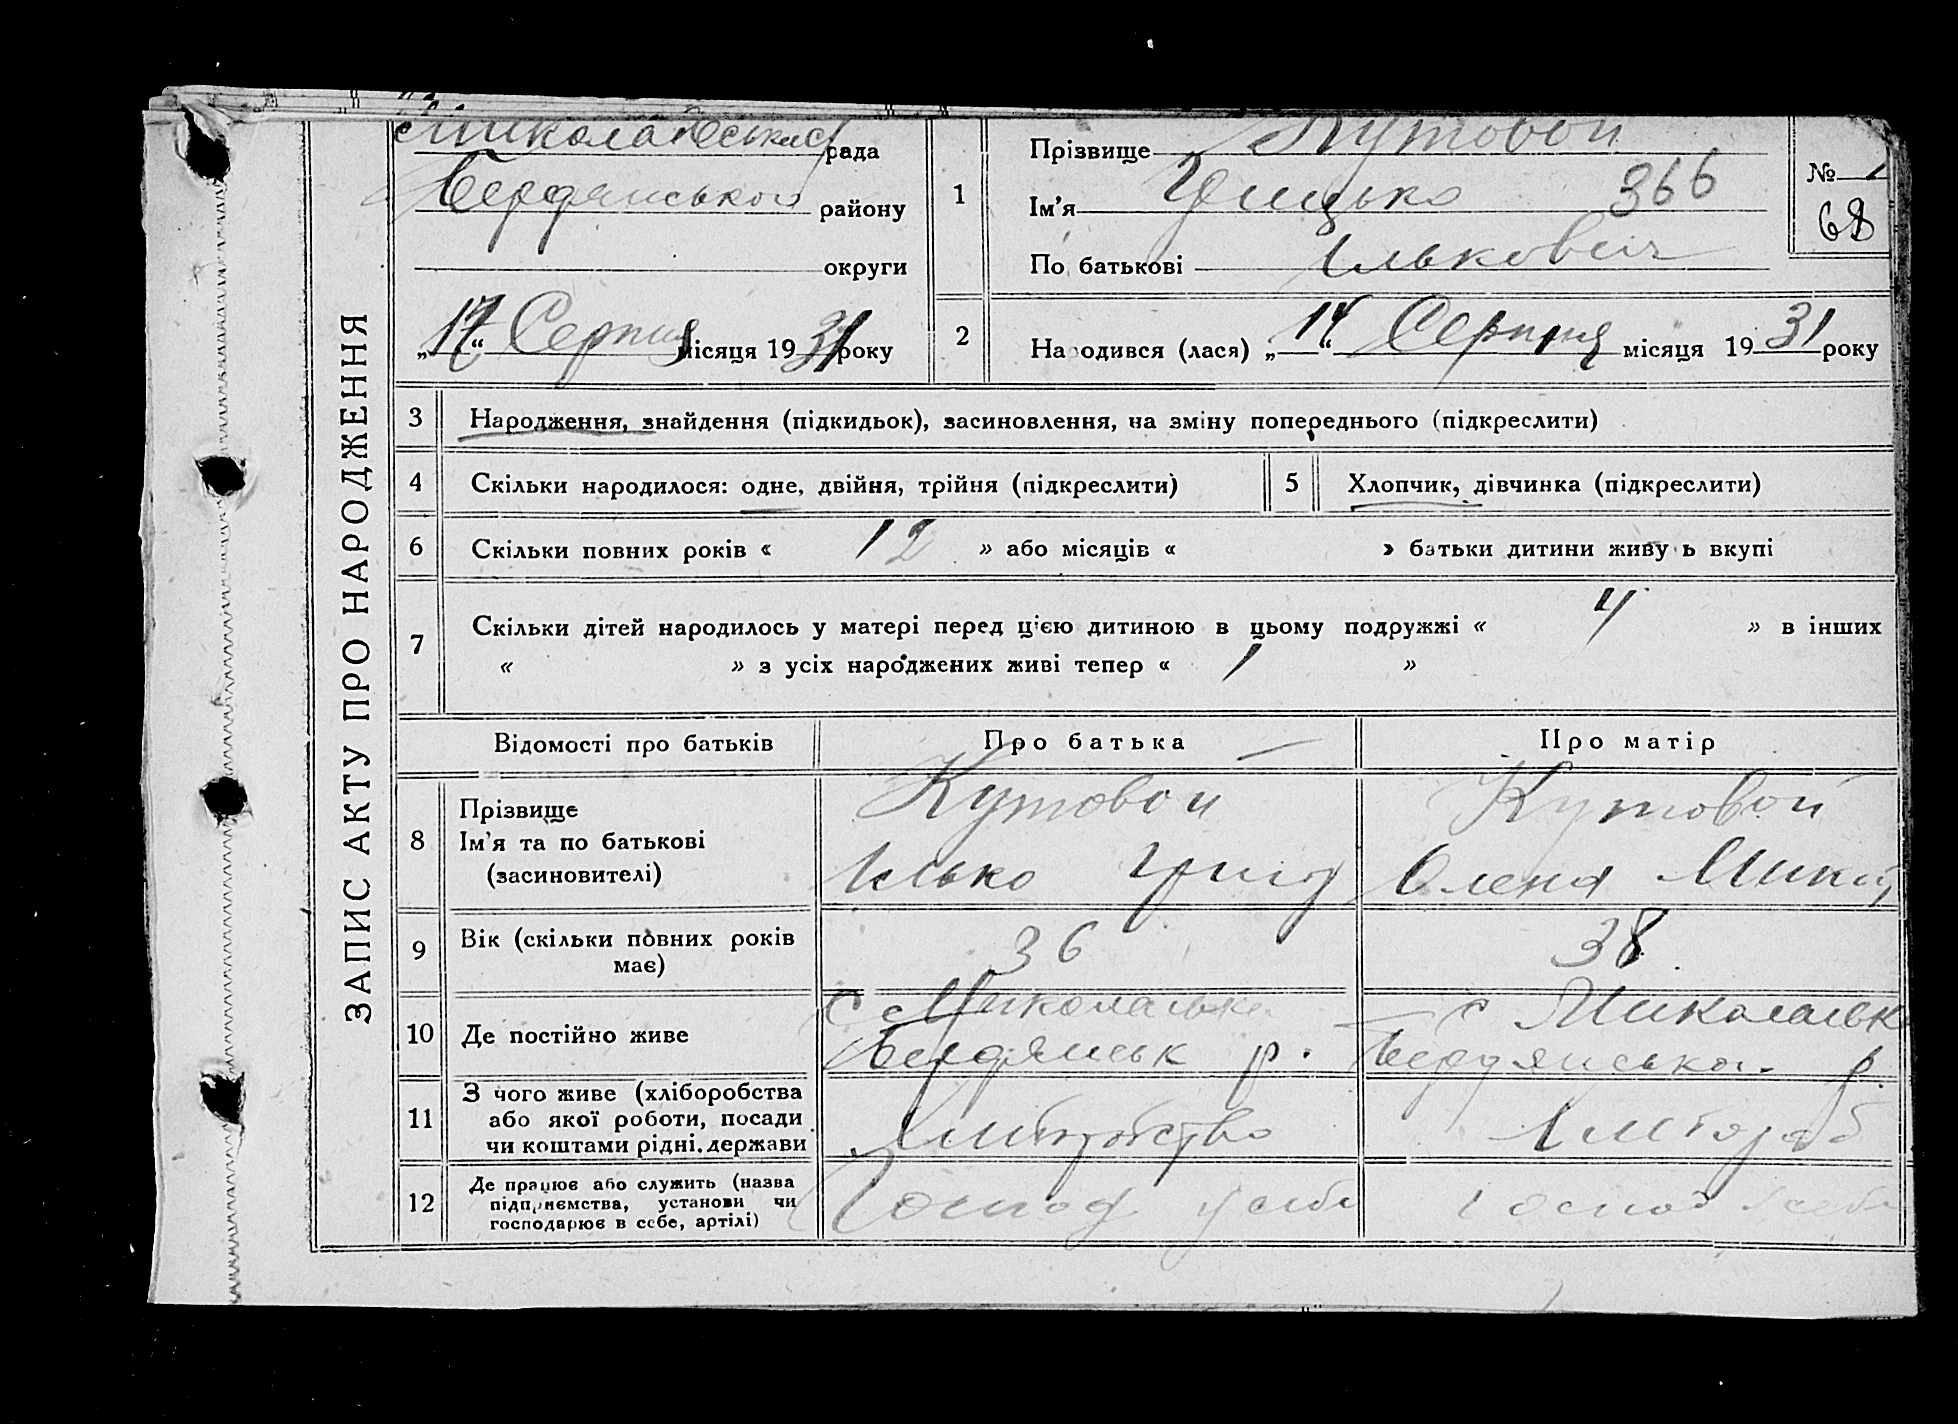 ЗАПИС АКТУ ПРО НАРОДЖЕННЯ
рада
Бердянського району
округи
„17“ Серпня місяця 1931 року
1
Прізвище Кутовой
Ім'я Грицько 366
По батьковіІлькович
№ 1
68
2
Народився (лася) „14“ Серпня місяця 1931 року
3 Народження, знайдення (підкидьок), засиновлення, на зміну попереднього (підкреслити)
4 Скільки народилося: одне, двійня, трійня (підкреслити)
5 Хлопчик, дівчинка (підкреслити)
6 Скільки повних років « 12 » або місяців « » батьки дитини живуть вкупі
7 Скільки дітей народилось у матері перед цією дитиною в цьому подружжі « 4 » в інших
« » з усіх народжених живі тепер « 1 »
Відомості про батьків
Про батька
Про матір
8 Прізвище
Ім'я та по батькові
(засиновителі)
Кутовой
Ілько Григ
Кутовой
Олена Микит
9 Вік (скільки повних років
має)
36
38
10 Де постійно живе
с Миколаївка
Бердянськ р.
с Миколаївка
Бердянськ. р.
11 З чого живе (хліборобства
або якої роботи, посади
чи коштами рідні, держави
Хліборобство
Хлібороб
12 Де працює або служить (назва
підприємства, установи чи
господарює в себе, артілі)
Господ у себе
Господ у себе